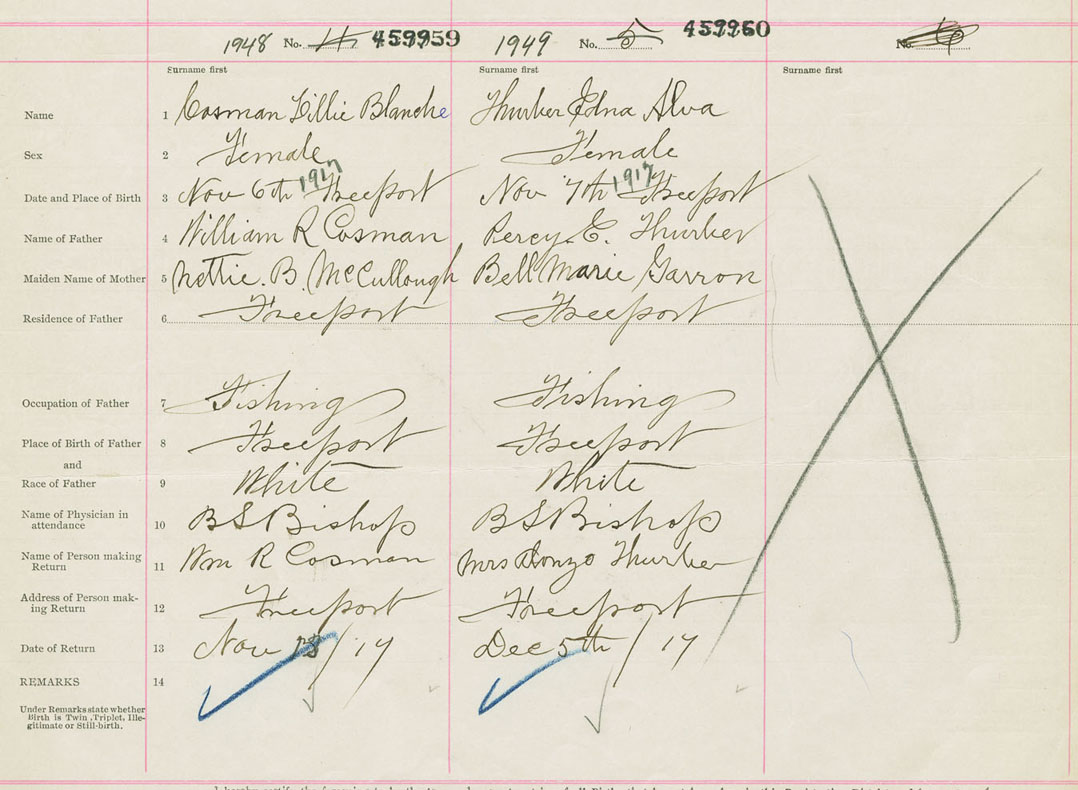 1948 No. 4 459959 1949 No. 5 459960 No. 6
Surname first Surname first Surname first
Name 1 Cosman Lillie Blanche Thurber Edna Alva
Sex 2 Female Female
Date and Place of Birth 3 Nov 6th 1917 Freeport Nov 7th 1917 Freeport
Name of Father 4 William R Cosman Percy. E. Thurber
Maiden Name of Mother 5 Nettie. B. McCullough Bell Marie Garron
Residence of Father 6 Freeport Freeport
Occupation of Father 7 Fishing Fishing
Place of Birth of Father 8 Freeport Freeport
and
Race of Father 9 White White
Name of Physician in
attendance 10 B S Bishop B S Bishop
Name of Person making
Return 11 Wm R Cosman Mrs Alonzo Thurber
Address of Person mak-
ing Return 12 Freeport Freeport
Date of Return 13 Nov /17 Dec 5th /17
REMARKS 14
Under Remarks state whether
Birth is Twin, Triplet, Ille-
gitimate or Still-birth.